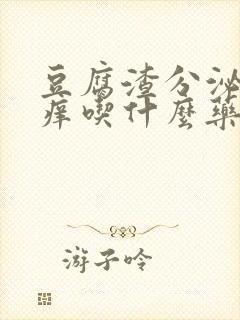 豆腐渣分泌
痒喫什麼藥
游子吟